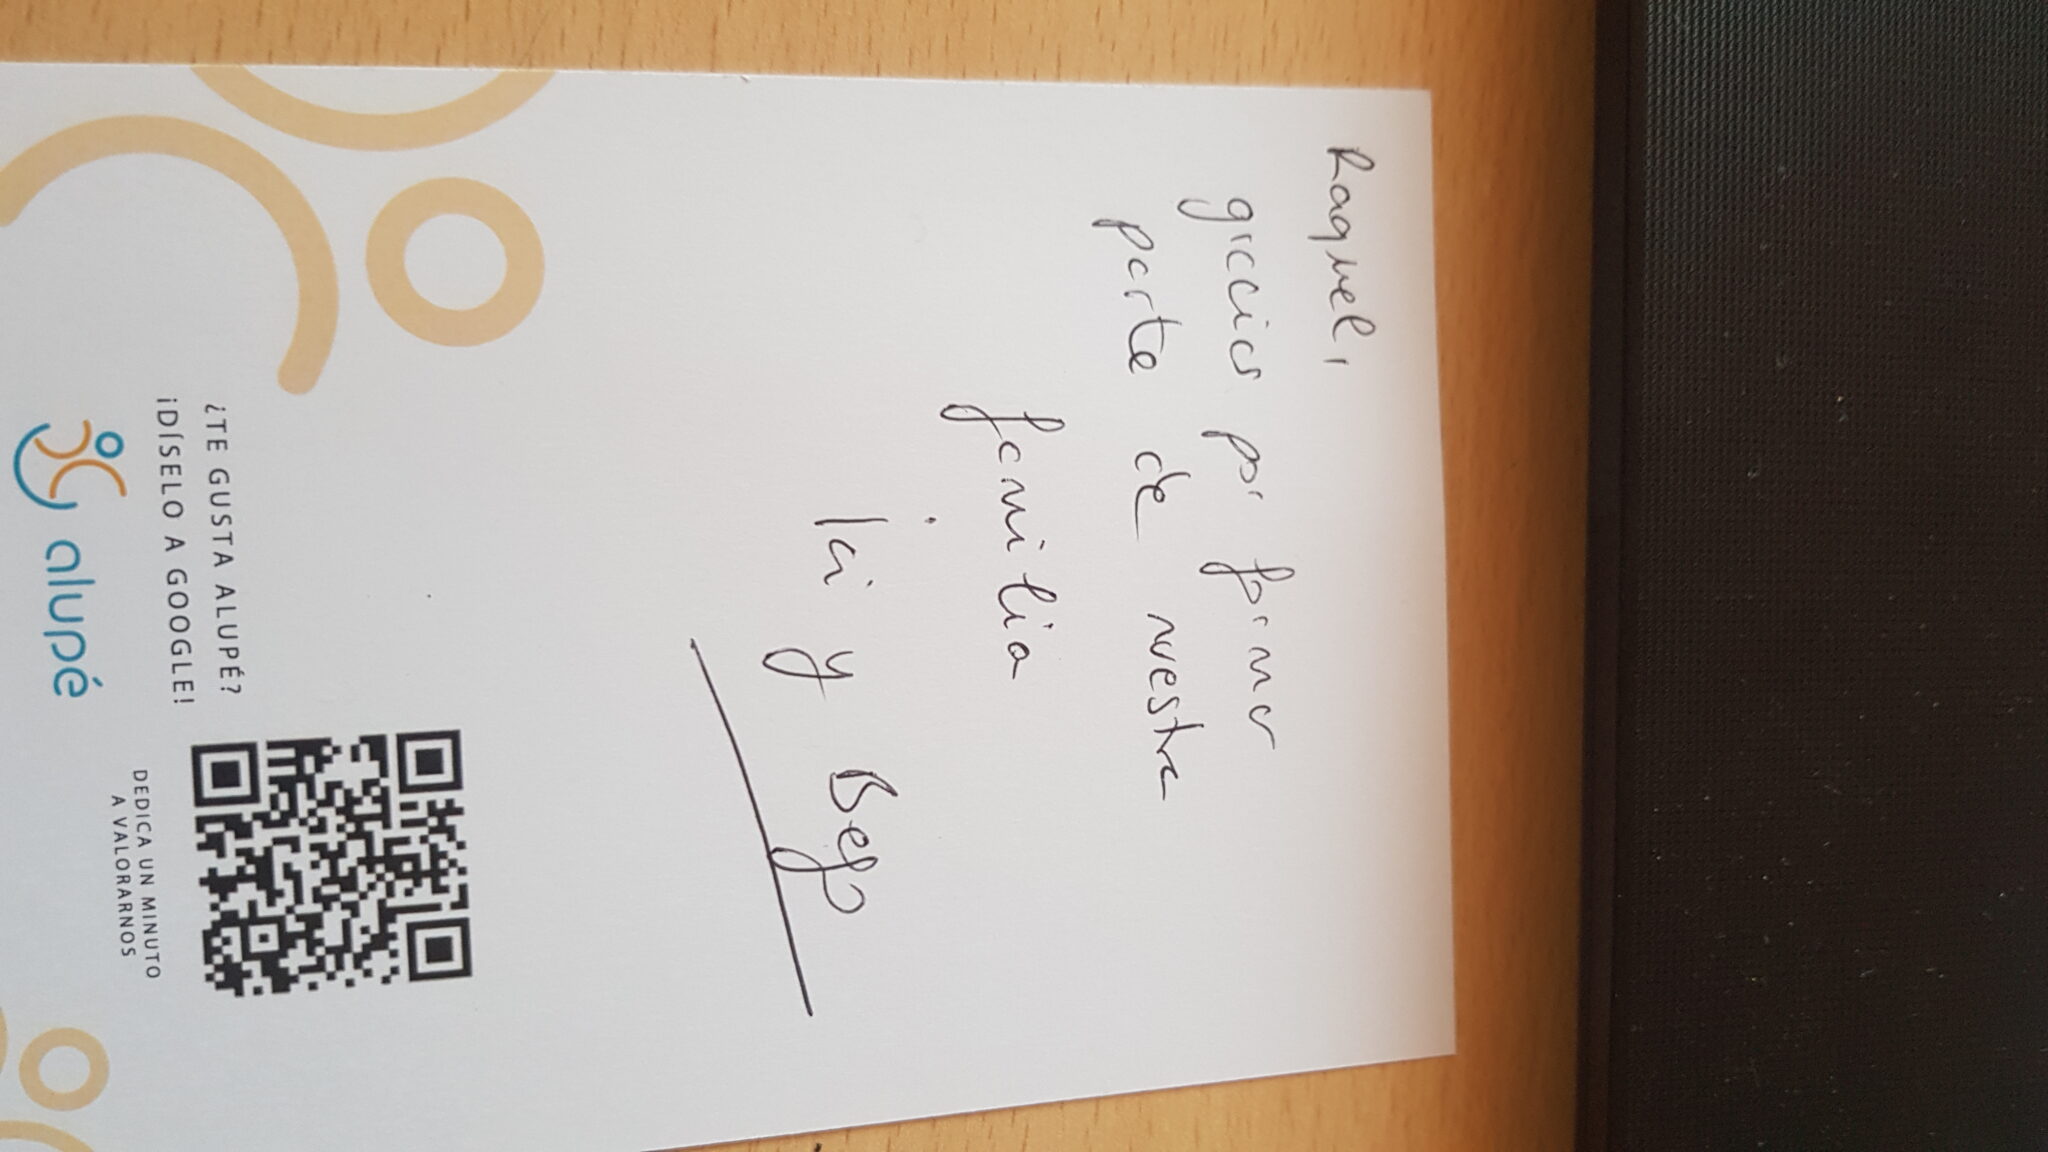 Raquel,
gracias por formar
parte de nuestra
familia
Iai y Bego
¿TE GUSTA ALUPÉ?
¡DÍSELO A GOOGLE!
alupé
DEDICA UN MINUTO
A VALORARNOS